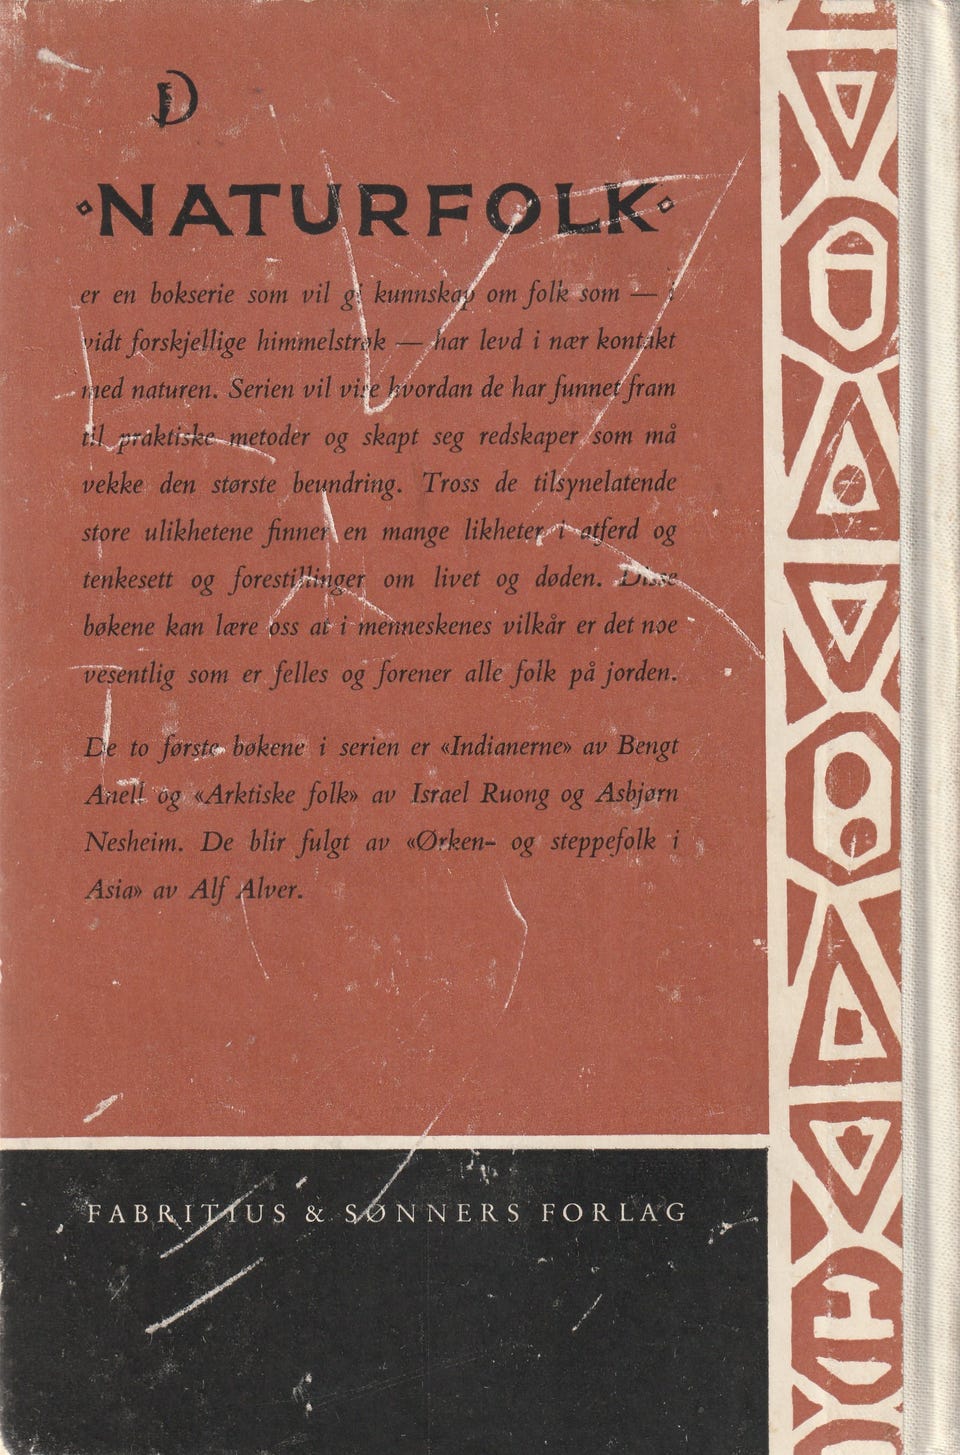 D
NATURFOLK
er en bokserie som vil gi kunnskap om folk som — i
vidt forskjellige himmelstrøk — har levd i nær kontakt
med naturen. Serien vil vise hvordan de har funnet fram
til praktiske metoder og skapt seg redskaper som må
vekke den største beundring. Tross de tilsynelatende
store ulikhetene finner en mange likheter i atferd og
tenkesett og forestillinger om livet og døden. Disse
bøkene kan lære oss at i menneskenes vilkår er det noe
vesentlig som er felles og forener alle folk på jorden.
De to første bøkene i serien er «Indianerne» av Bengt
Anell og «Arktiske folk» av Israel Ruong og Asbjørn
Nesheim. De blir fulgt av «Ørken- og steppefolk i
Asia» av Alf Alver.
FABRITIUS & SØNNERS FORLAG